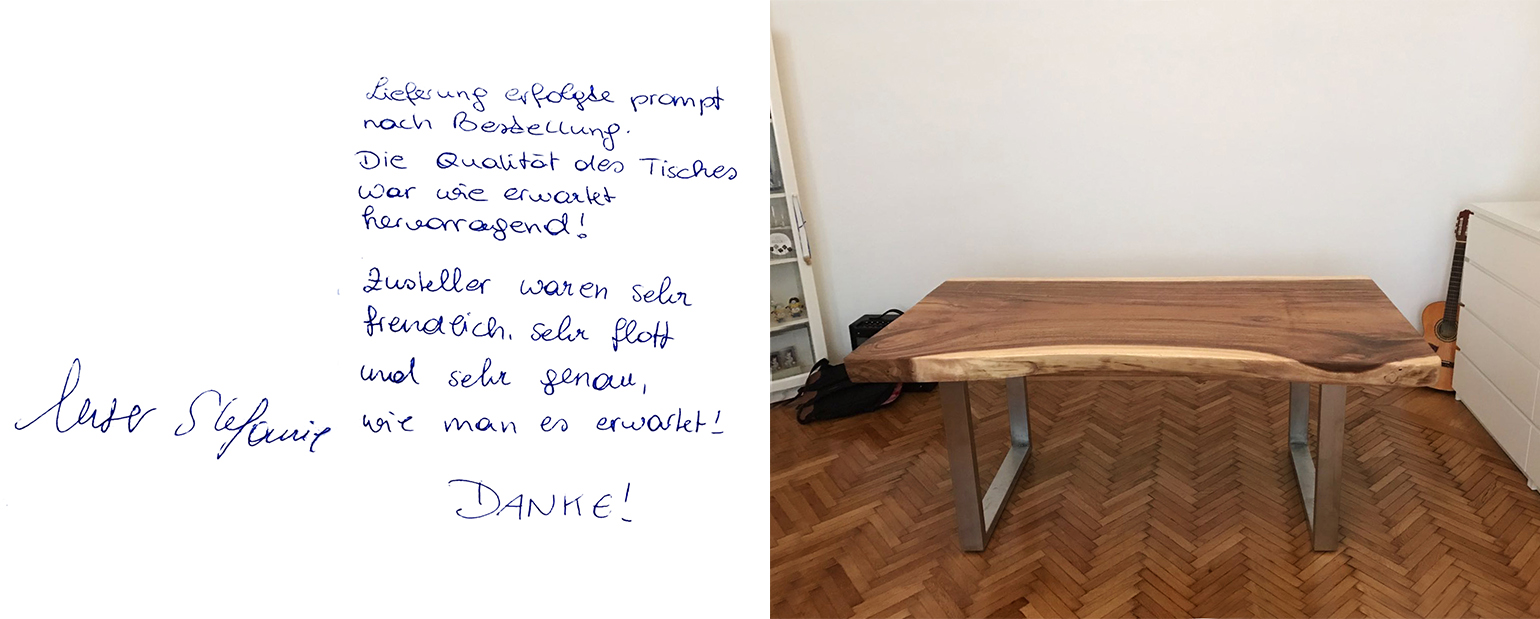 Lieferung erfolgte prompt
nach Bestellung.
Die Qualität des Tisches
war wie erwartet
hervorragend!
Zusteller waren sehr
freundlich, sehr flott
und sehr genau,
wie man es erwartet!
DANKE!
Stefanie